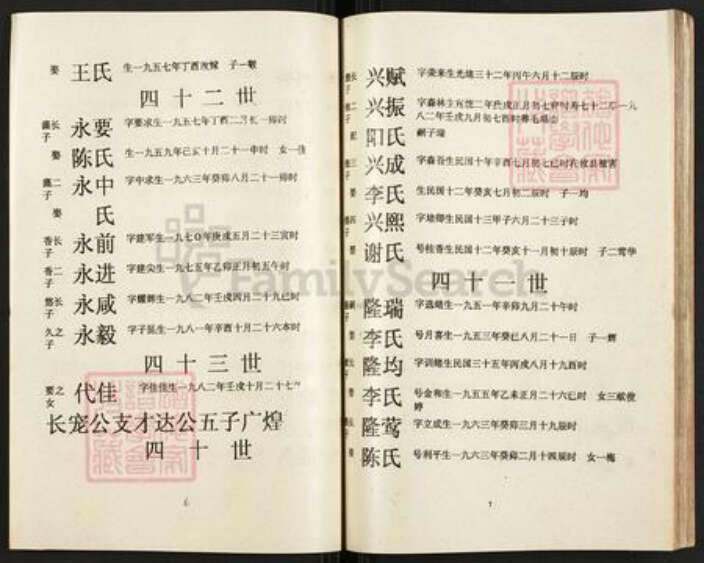 娶 王氏 生一九五七年丁酉改嫁 子一敏
四十二世
长子 永要 字要求生一九五七年丁酉二月 时
娶 陈氏 生一九五九年己亥十月二十一申时 女一
二子 永中 字中求生一九六三年癸卯八月二十一卯时
娶 氏
香长子 永前 字建军生一九七〇年庚戌五月二十三寅时
香二子 永进 字建尖生一九七五年乙卯正月初五午时
长子 永咸 生一九八二年壬戌四月二十九巳时
久之子 永毅 字子 生一九八一年辛酉十月二十六 时
四十三世
要之女 代佳 字佳佳生一九八二年壬戌十月二十七
长宠公支才达公五子广煌
四十世
6
长子 兴赋 字荣来生光绪三十二年丙午六月十二辰时
二子 兴振 字森林生宣统二年庚戌正月初七 时寿七十二 一九八二年壬戌九月初七酉时
配 阳氏 嗣子瑞
三子 兴成 字森吾生民国十年辛酉七月初七巳时在攸县被害
娶 李氏 生民国十二年癸亥七月初二辰时 子一均
四子 兴熙 字地卿生民国十三年甲子六月二十三子时
娶 谢氏 号桂香生民国十二年癸亥十一月初十辰时 子二莺华
四十一世
嗣子 隆瑞 字选 生一九五一年辛卯九月二十午时
娶 李氏 号月喜生一九五三年癸巳八月二十一日 子一辉
长子 隆均 字训 生民国三十五年丙戌八月十九酉时
娶 李氏 号金和生一九五五年乙未正月二十六巳时 女三 婷
长子 隆莺 字立成生一九六三年癸卯三月十九辰时
娶 陈氏 号利平生一九六三年癸卯二月十四辰时 女一梅
7
FamilySearch